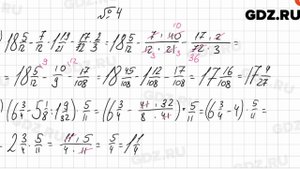 №4
GDZ.RU
18 5/12 - 7/12 : 1 13/21 - 17/12 · 2/3 = 18 5/12 - 7 · 40/12 · 21 - 17 · 2/12 · 3 =
18 5/12 - 10/9 - 17/108 = 18 45/108 - 1 12/108 - 17/108 = 17 16/108 = 17 4/27
(6 3/4 - 5 1/8 : 1 9/32) · 5/11 = (6 3/4 - 41 · 32/8 · 41) · 5/11 = (6 3/4 - 4) · 5/11 =
2 3/4 · 5/11 = 11 · 5/4 · 11 = 5/4 = 1 1/4
GDZ.RU